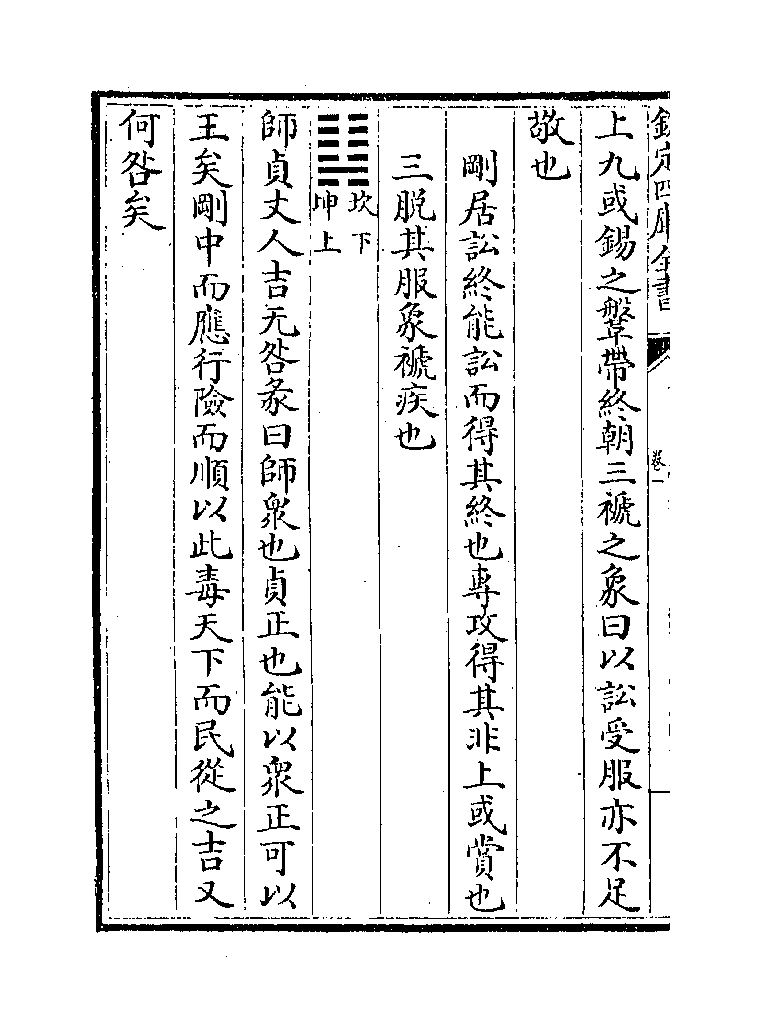 欽定四庫全書
卷一
上九或錫之鞶帶終朝三褫之象曰以訟受服亦不足
敬也
剛居訟終能訟而得其終也專攻得其非上或賞也
三脱其服象褫疾也
䷆坎下坤上
師貞丈人吉无咎彖曰師衆也貞正也能以衆正可以
王矣剛中而應行險而順以此毒天下而民從之吉又
何咎矣